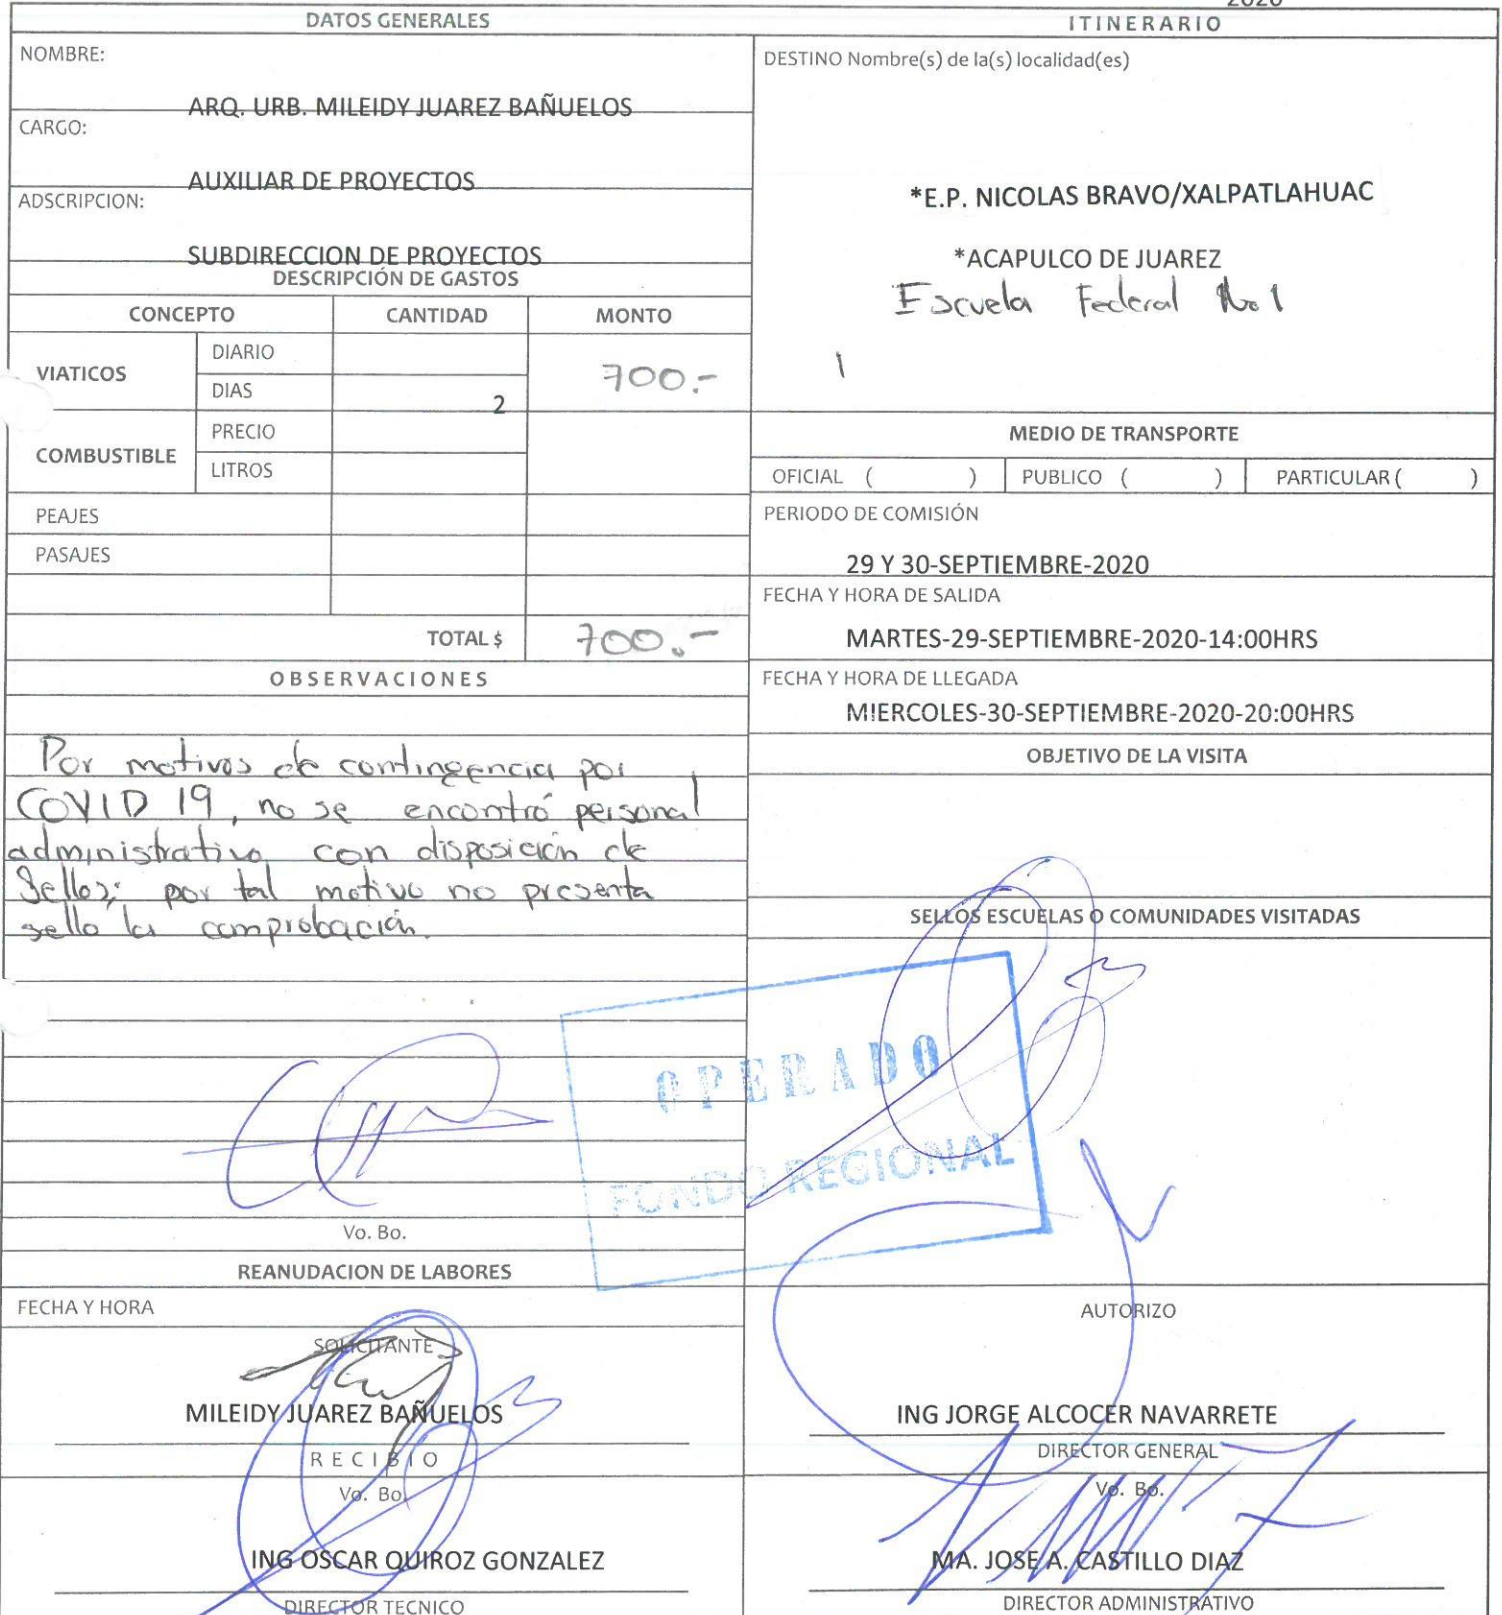 2020
DATOS GENERALES
NOMBRE:
ARQ. URB. MILEIDY JUAREZ BAÑUELOS
CARGO:
AUXILIAR DE PROYECTOS
ADSCRIPCION:
SUBDIRECCION DE PROYECTOS
DESCRIPCIÓN DE GASTOS
CONCEPTO CANTIDAD MONTO
VIATICOS DIARIO 700.-
DIAS 2
COMBUSTIBLE PRECIO
LITROS
PEAJES
PASAJES
TOTAL $ 700.-
OBSERVACIONES
Por motivos de contingencia por
COVID 19, no se encontró personal
administrativo con disposición de
Sellos; por tal motivo no presenta
sello la comprobación.
Vo. Bo.
REANUDACION DE LABORES
FECHA Y HORA
SOLICITANTE
MILEIDY JUAREZ BAÑUELOS
RECIBIO
Vo. Bo.
ING OSCAR QUIROZ GONZALEZ
DIRECTOR TECNICO
ITINERARIO
DESTINO Nombre(s) de la(s) localidad(es)
*E.P. NICOLAS BRAVO/XALPATLAHUAC
*ACAPULCO DE JUAREZ
Escuela Federal No 1
MEDIO DE TRANSPORTE
OFICIAL ( ) PUBLICO ( ) PARTICULAR ( )
PERIODO DE COMISIÓN
29 Y 30-SEPTIEMBRE-2020
FECHA Y HORA DE SALIDA
MARTES-29-SEPTIEMBRE-2020-14:00HRS
FECHA Y HORA DE LLEGADA
MIERCOLES-30-SEPTIEMBRE-2020-20:00HRS
OBJETIVO DE LA VISITA
SELLOS ESCUELAS O COMUNIDADES VISITADAS
OPERADO
FONDO REGIONAL
AUTORIZO
ING JORGE ALCOCER NAVARRETE
DIRECTOR GENERAL
Vo. Bo.
MA. JOSE A. CASTILLO DIAZ
DIRECTOR ADMINISTRATIVO